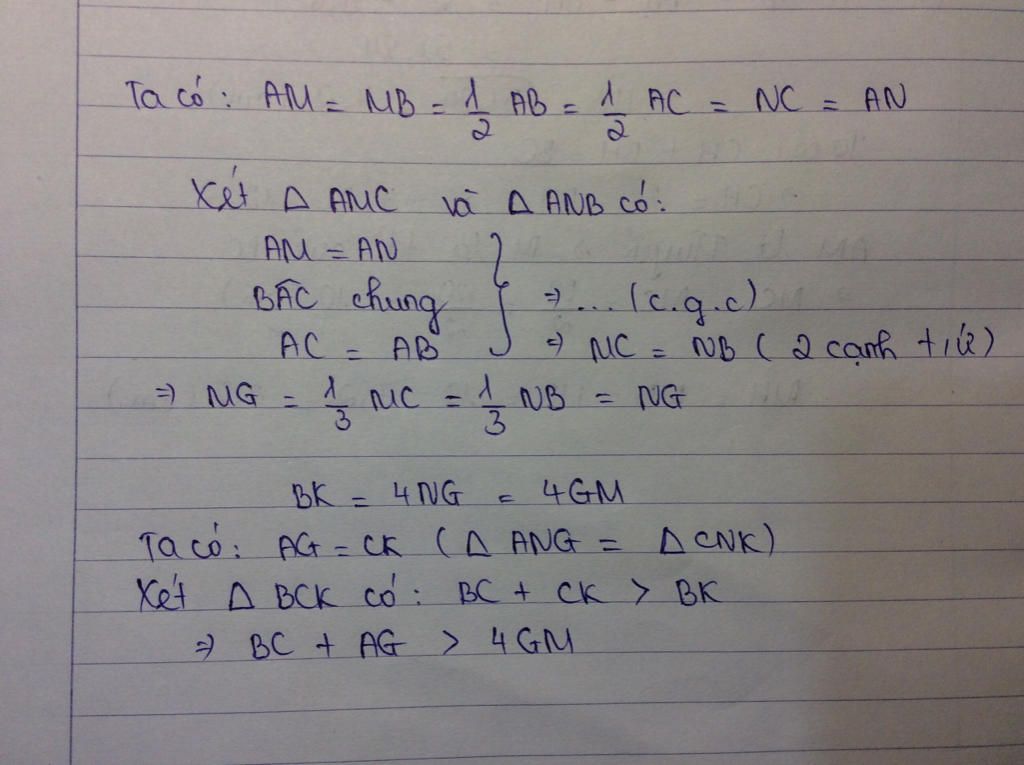 Ta có: AM = MB = 1/2 AB = 1/2 AC = NC = AN
Xét Δ AMC và Δ ANB có:
AM = AN
BÂC chung
AC = AB
} ⇒ ... (c.g.c)
⇒ MC = NB (2 cạnh t/ứ)
⇒ MG = 1/3 MC = 1/3 NB = NG
BK = 4NG = 4GM
Ta có: AG = CK (Δ ANG = Δ CNK)
Xét Δ BCK có: BC + CK > BK
⇒ BC + AG > 4GM